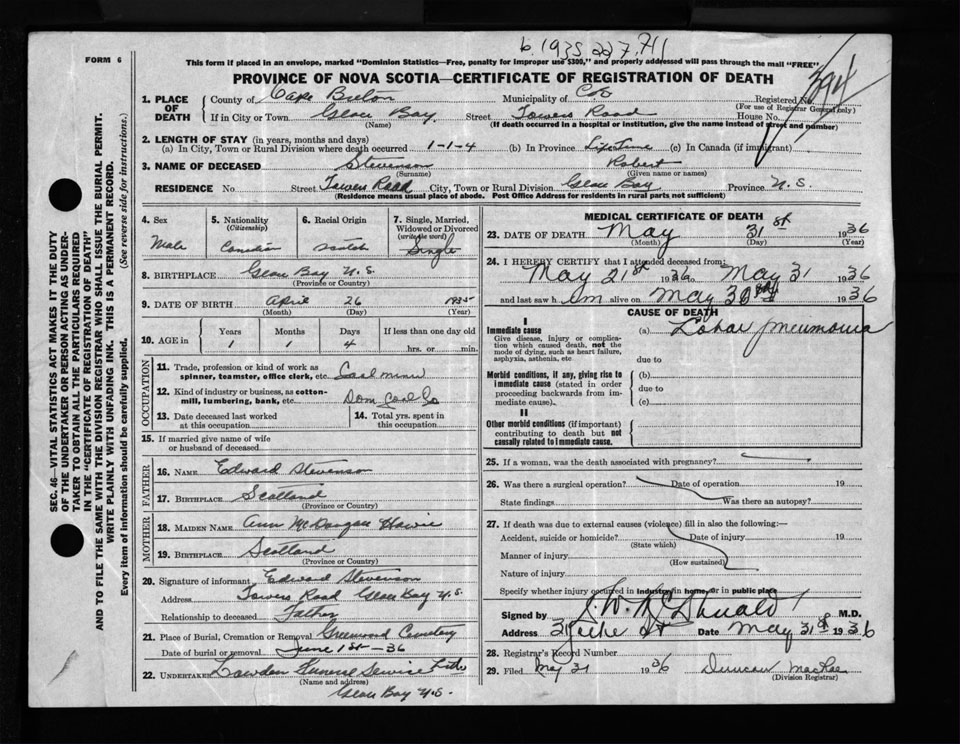 b. 1935 227.711
FORM 6
This form if placed in an envelope, marked "Dominion Statistics—Free, penalty for improper use $300," and properly addressed will pass through the mail "FREE"
PROVINCE OF NOVA SCOTIA—CERTIFICATE OF REGISTRATION OF DEATH
1. PLACE OF DEATH
County of Cape Breton Municipality of Co Registered No.
(For use of Registrar General only)
If in City or Town Glace Bay Street Towers Road House No.
(Name) (If death occurred in a hospital or institution, give the name instead of street and number)
2. LENGTH OF STAY (in years, months and days)
(a) In City, Town or Rural Division where death occurred 1-1-4 (b) In Province Lifetime (c) In Canada (if immigrant)
3. NAME OF DECEASED Stevenson Robert
(Surname) (Given name or names)
RESIDENCE No Street Towers Road City, Town or Rural Division Glace Bay Province N.S.
(Residence means usual place of abode. Post Office Address for residents in rural parts not sufficient)
4. Sex
Male
5. Nationality
(Citizenship)
Canadian
6. Racial Origin
Scotch
7. Single, Married,
Widowed or Divorced
(write the word)
Single
8. BIRTHPLACE Glace Bay N.S.
(Province or Country)
9. DATE OF BIRTH April 26 1935
(Month) (Day) (Year)
10. AGE in
Years Months Days If less than one day old
1 1 4 hrs. or min.
OCCUPATION
11. Trade, profession or kind of work as
spinner, teamster, office clerk, etc. Coal miner
12. Kind of industry or business, as cotton-
mill, lumbering, bank, etc. Dom Coal Co
13. Date deceased last worked
at this occupation
14. Total yrs. spent in
this occupation
15. If married give name of wife
or husband of deceased
FATHER
16. NAME Edward Stevenson
17. BIRTHPLACE Scotland
(Province or Country)
MOTHER
18. MAIDEN NAME Ann McDougall Howie
19. BIRTHPLACE Scotland
(Province or Country)
20. Signature of informant Edward Stevenson
Address Towers Road Glace Bay N.S.
Relationship to deceased Father
21. Place of Burial, Cremation or Removal Greenwood Cemetery
Date of burial or removal June 1st-36
22. UNDERTAKER Funeral Service
(Name and address)
Glace Bay N.S.
MEDICAL CERTIFICATE OF DEATH
23. DATE OF DEATH May 31st 1936
(Month) (Day) (Year)
24. I HEREBY CERTIFY that I attended deceased from:
May 21st 1936 to May 31 1936
and last saw him alive on May 30 1936
CAUSE OF DEATH
I
Immediate cause
Give disease, injury or complication which caused death, not the mode of dying, such as heart failure, asphyxia, asthenia, etc
(a) Lobar Pneumonia
due to
Morbid conditions, if any, giving rise to
immediate cause (stated in order
proceeding backwards from immediate cause).
(b)
due to
(c)
II
Other morbid conditions (if important)
contributing to death but not
causally related to immediate cause.
25. If a woman, was the death associated with pregnancy?
26. Was there a surgical operation? Date of operation 19
State findings Was there an autopsy?
27. If death was due to external causes (violence) fill in also the following:
Accident, suicide or homicide? Date of injury 19
(State which)
Manner of injury
(How sustained)
Nature of injury
Specify whether injury occurred in industry, in home, or in public place
Signed by M.D.
Address Date May 31st 1936
28. Registrar's Record Number
29. Filed May 31 1936 Duncan MacRae
(Division Registrar)
SEC. 46—VITAL STATISTICS ACT MAKES IT THE DUTY
OF THE UNDERTAKER OR PERSON ACTING AS UNDER-
TAKER TO OBTAIN ALL THE PARTICULARS REQUIRED
IN THE "CERTIFICATE OF REGISTRATION OF DEATH"
AND TO FILE THE SAME WITH THE DIVISION REGISTRAR WHO SHALL ISSUE THE BURIAL PERMIT.
WRITE PLAINLY WITH UNFADING INK. THIS IS A PERMANENT RECORD.
Every item of information should be carefully supplied. (See reverse side for instructions.)